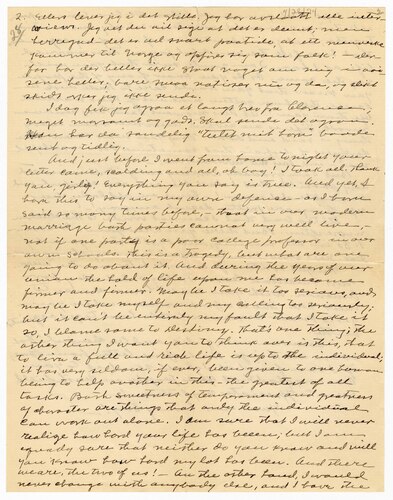 2. Ellers lever jeg i det stille. Jeg har avslaatt alle inter-
views. Jeg vet du vil sige at det er dumt, men
herregud det er vel snart paatide, at ett menneske
kommer til Norge og opfører sig som folk! — der-
for bør der heller ikke staa noget om mig i avi-
sene heller, bare mens notiser nu og da, og slikt
skidt orker jeg ikke sende.
I dag fik jeg ogsaa et langt brev fra Clarence,
meget morsomt og godt. Skal sende det ogsaa.
Han har da sandelig "tutet mit horn" baade
sent og tidlig.
And just before I went from home to night your
letter came, scalding and all, oh boy! I took all. Thank
you, girly! Everything you say is true. And yet, I
have this to say in my own defense — as I have
said so many times before, — that in our modern
marriage both parties cannot very well live,
not if one party is a poor college professor in our
own schools. This is a tragedy, but what are one
going to do about it. And during the years of our
union the hold of life upon me has become
firmer and firmer. Maybe I take it too serious, and
maybe I take myself and my calling too seriously;
but it can't be entirely my fault that I take it
so, I blame some to destiny. That's one thing; the
other thing I want you to think over is this, that
to live a full and rich life is up to the individual;
it has very seldom, if ever, been given to one human
being to help another in this — the greatest of all
tasks. Both sweetness of temperament and greatness
of character are things that only the individual
can work out alone. I am sure that I will never
realize how hard your life has been, but I am
equally sure that neither do you know and will
you know how hard my lot has been. And there
we are, the two of us! On the other hand, I would
never change with anybody else, and I have the